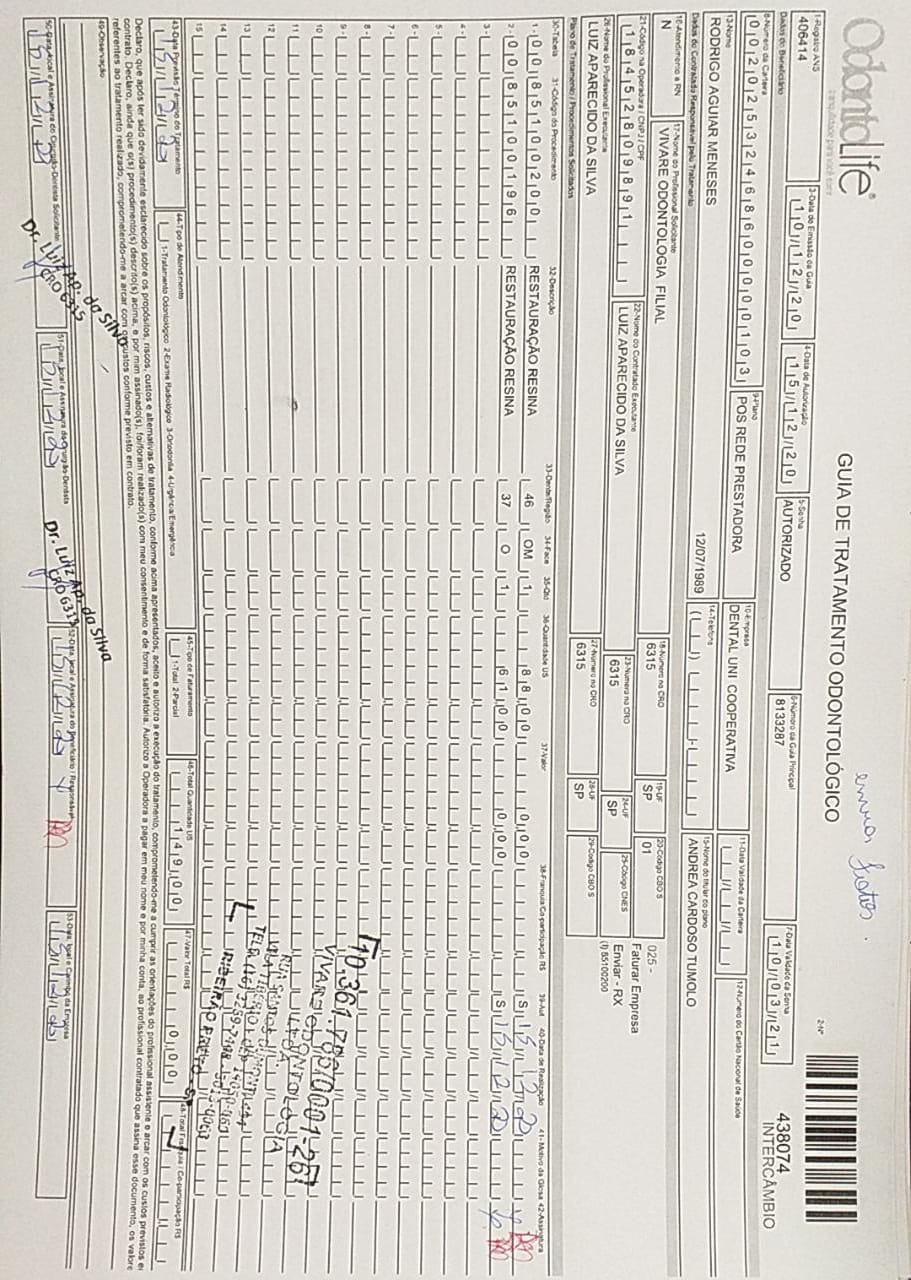 OdontoLife®
tranquilidade para você sorrir
GUIA DE TRATAMENTO ODONTOLÓGICO
enviar
2-Nº
438074
INTERCÂMBIO
1-Registro ANS
406414
3-Data de Emissão da Guia
10/12/20
4-Data de Autorização
15/12/20
5-Senha
AUTORIZADO
6-Número da Guia Principal
8133287
7-Data Validade da Senha
10/03/21
Dados do Beneficiário
8-Número da Carteira
00202532468600000103
9-Plano
POS REDE PRESTADORA
10-Empresa
DENTAL UNI COOPERATIVA
11-Data Validade da Carteira
12-Número do Cartão Nacional de Saúde
13-Nome
RODRIGO AGUIAR MENESES
12/07/1989
14-Telefone
15-Nome do titular do plano
ANDREA CARDOSO TUMOLO
Dados do Contratado Responsável pelo Tratamento
16-Atendimento a RN
N
17-Nome do Profissional Solicitante
VIVARE ODONTOLOGIA FILIAL
18-Número no CRO
6315
19-UF
SP
20-Código CBO S
01
025 -
Faturar Empresa
21-Código na Operadora / CNPJ / CPF
18452809891
22-Nome do Contratado Executante
LUIZ APARECIDO DA SILVA
23-Número no CRO
6315
24-UF
SP
25-Código CNES
Enviar - RX
(I) 85100200
26-Nome do Profissional Executante
LUIZ APARECIDO DA SILVA
27-Número no CRO
6315
28-UF
SP
29-Código CBO S
Plano de Tratamento / Procedimentos Solicitados
30-Tabela 31-Código do Procedimento 32-Descrição 33-Dente/Região 34-Face 35-Qtd 36-Quantidade US 37-Valor 38-Franquia/Co-participação R$ 39-Aut 40-Data de Realização 41-Motivo da Glosa 42-Assinatura
1- 00 85100200 RESTAURAÇÃO RESINA 46 OM 1 88,00 0,00 S
2- 00 85100196 RESTAURAÇÃO RESINA 37 O 1 61,00 0,00 S
3-
4-
5-
6-
7-
8-
9-
10-
11
12
13
14
15
VIVARE ODONTOLOGIA
RIBEIRÃO PRETO - SP
43-Data Previsão Término do Tratamento
44-Tipo de Atendimento
1-Tratamento Odontológico 2-Exame Radiológico 3-Ortodontia 4-Urgência/Emergência
45-Tipo de Faturamento
1-Total 2-Parcial
46-Total Quantidade US
149,00
47-Valor Total R$
0,00
48-Total Franquia / Co-participação R$
Declaro, que após ter sido devidamente esclarecido sobre os propósitos, riscos, custos e alternativas de tratamento, conforme acima apresentados, aceito e autorizo a execução do tratamento, comprometendo-me a cumprir as orientações do profissional assistente e arcar com os custos previstos em
contrato. Declaro, ainda que o(s) procedimento(s) descrito(s) acima, e por mim assinado(s), foi/foram realizado(s) com meu consentimento e de forma satisfatória. Autorizo a Operadora a pagar em meu nome e por minha conta, ao profissional contratado que assina esse documento, os valore
referentes ao tratamento realizado, comprometendo-me a arcar com os custos conforme previsto em contrato.
49-Observação
50-Data, local e Assinatura do Cirurgião-Dentista Solicitante
51-Data, local e Assinatura do Cirurgião-Dentista
52-Data, local e Assinatura do Beneficiário / Responsável
53-Data, local e Carimbo da Empresa
Dr. Luiz Ap. da Silva
CRO 6315
Dr. Luiz Ap. da Silva
CRO 6315